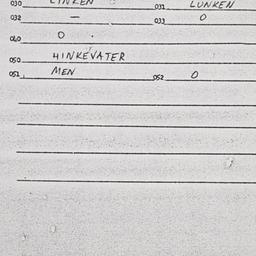 030 LYNXEN 031 LUNKEN
032 — 033 0
040 0
050 HINKEVATER
051 MEN 052 0